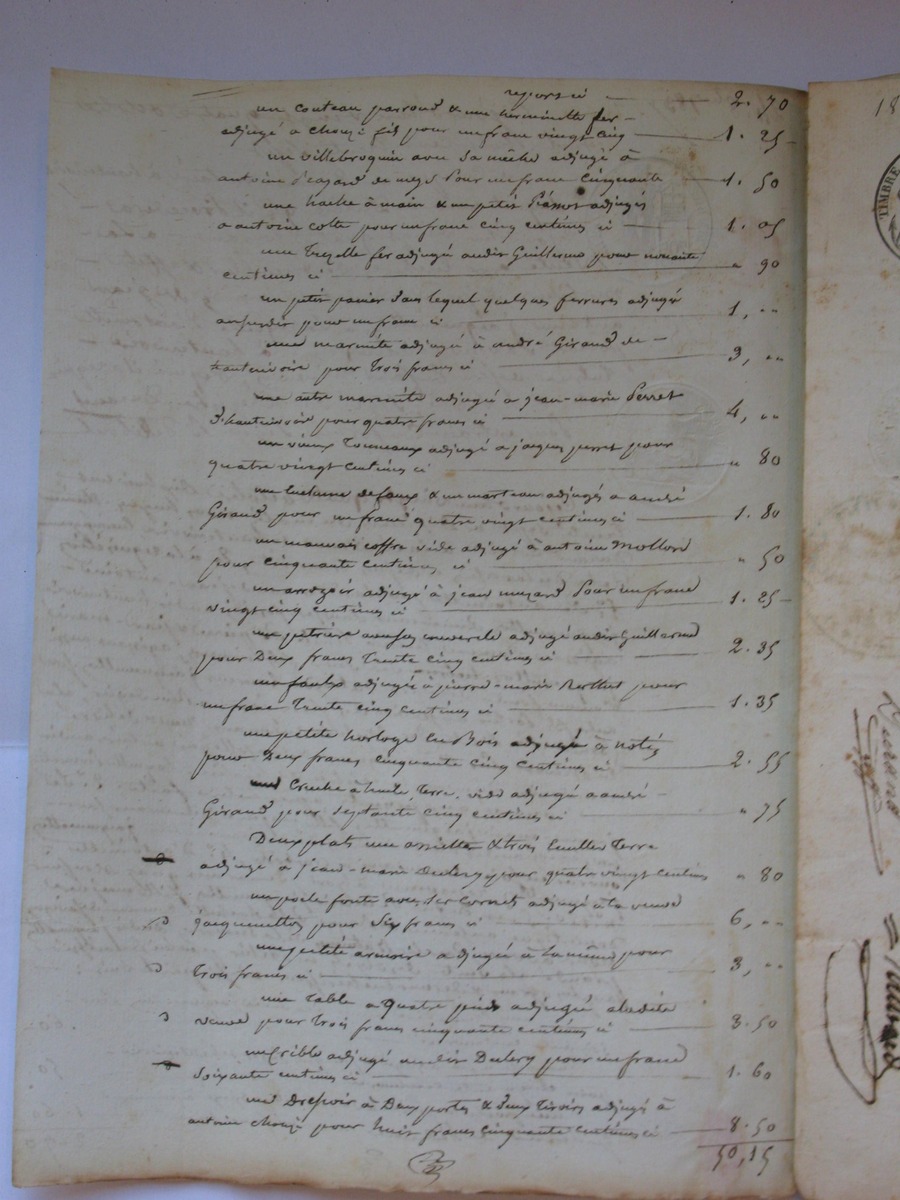 report ci — 2. 70
un couteau parroud & une herminette fer
adjugé a chouzi fils pour un franc vingt cinq — 1. 25
un villebroquin avec sa mêche adjugé à
antoine pour un franc cinquante — 1. 50
une hache à main & un petit adjugés
a antoine cotte pour un franc cinq centimes ci — 1. 05
une fer adjugé audit Guillermo pour nonante
centimes ci — " 90
un petit panier dans lequel quelques ferrures adjugé
au susdit pour un franc ci — 1, "
une marmite adjugée à andré Giraud de —
hautevoire pour trois francs ci — 3, "
une autre marmite adjugée a jean-marie Perret
d'hautevoir pour quatre francs ci — 4, "
un vieux tonneaux adjugé a jacques perret pour
quatre vingt centimes ci — " 80
une enclume de faux & un marteau adjugés a andré
Giraud pour un franc quatre vingt centimes ci — 1. 80
un mauvais coffre vide adjugé à antoine Mollard
pour cinquante centimes ci — " 50
un arrozoir adjugé à jean muzard pour un franc
vingt cinq centimes ci — 1. 25
un pétrière couvercle adjugé audit Guillermo
pour Deux francs trente cinq centimes ci — 2. 35
un faulx adjugée à pierre-marie Berthet pour
un franc trente cinq centimes ci — 1. 35
une petite horloge en Bois adjugée à
pour deux francs cinquante cinq centimes ci — 2. 55
une Cruche à huile terre, vide adjugé a andré —
Giraud pour septante cinq centimes ci — " 75
Deux plats une assiette & trois terre
adjugé à jean-marie pour quatre vingt centimes " 80
un poele fonte avec ses cornets adjugé à la veuve
jacquemettoz pour six francs ci — 6, "
une petite armoire adjugée a la même pour
trois francs ci — 3, "
une table a quatre pieds adjugée a ladite
veuve pour trois francs cinquante centimes ci — 3. 50
un crible adjugé audit pour un franc
soixante centimes ci — 1. 60
un Dressoir à Deux portes & deux tiroirs adjugé à
antoine chouzi pour huit francs cinquante centimes ci — 8. 50
50, 15
18
TIMBRE